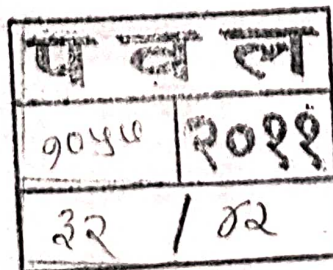 प व ल
१०५७ २०११
३२ / ४२